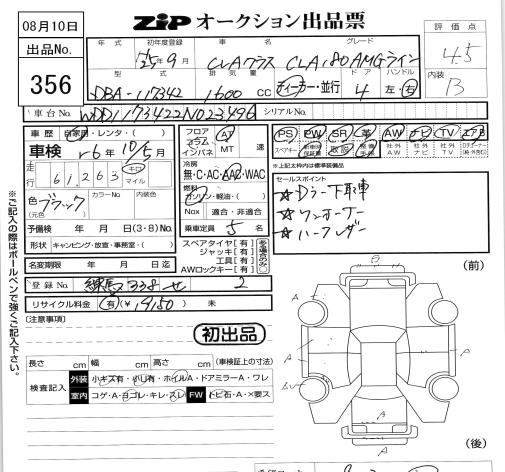 08月10日
ZiP オークション出品票
評価点
4.5
出品No.
356
年式 初年度登録 車名 グレード
25年9月 CLAクラス CLA180 AMGライン
型式 排気量 ドア ハンドル
DBA-117342 1600 CC ディーラー・並行 4 左・右
内装
B
車台No. WDD1173422N023496 シリアルNo.
車歴 自家用・レンタ・( )
車検 r6年10/5月
フロア コラム インパネ AT MT 速
PS PW SR 革 AW ナビ TV エアB
スペアキー 新車時保証書 取説 整備手帳 社外AW 社外ナビ 社外TV
走行 61,263 キロ マイル
冷房
無・C・AC・AAC・WAC
※上記太枠内は標準装備品
色 ブラック (元色) カラーNo. 内装色
燃料
ガソリン・軽油・( )
セールスポイント
☆Dラー下取車
☆ワンオーナー
☆ハーフレザー
Nox 適合・非適合
予備検 年 月 日(3・8)No.
乗車定員 5 名
形状 キャンピング・放宣・事務室・( )
スペアタイヤ[有]
ジャッキ[有]
工具[有]
AWロックキー[有]
名変期限 年 月 日迄
登録No. 練馬 338 せ 2
リサイクル料金 有(¥19150) 未
[注意事項]
初出品
(前)
長さ cm 幅 cm 高さ cm (車検証上の寸法)
検査記入 外装 小キズ有・小凹有・ホイルA・ドアミラーA・ワレ
室内 コゲ・A・ヨゴレ・キレ・スレ FW トビ石・A・×要ス
(後)
※ご記入の際はボールペンで強くご記入下さい。